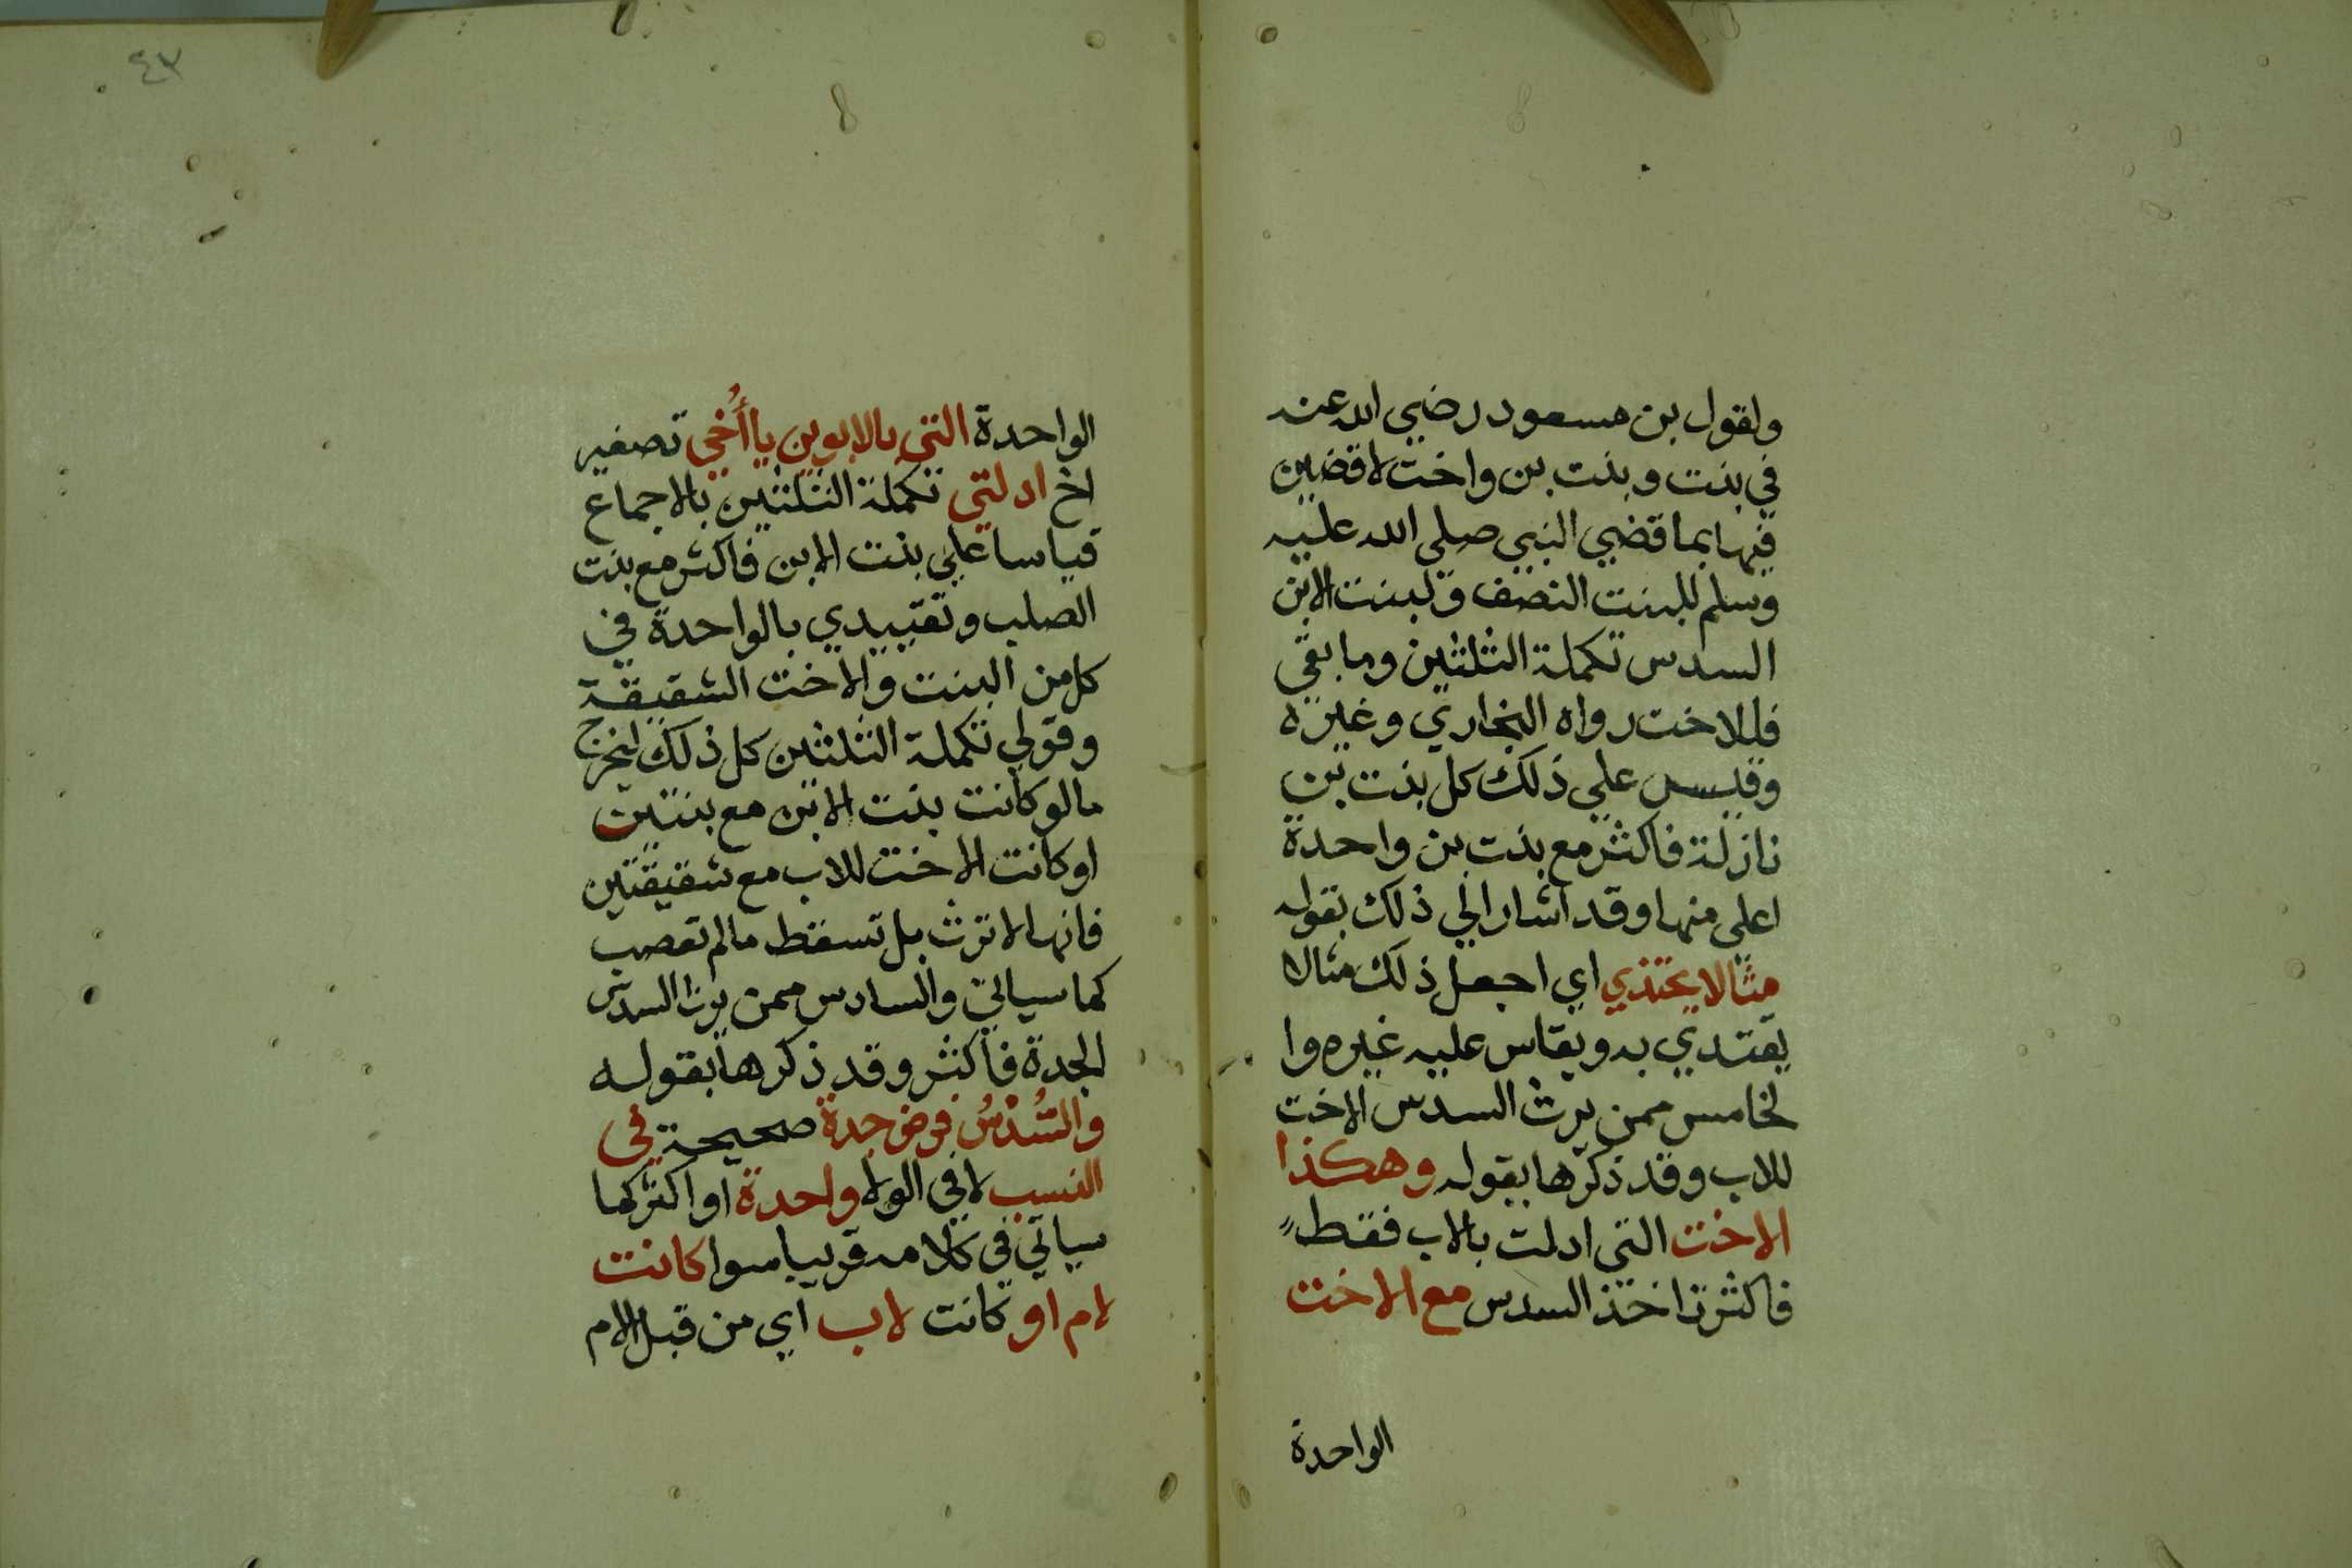 ولقول بن مسعود رضي الله عنه
في بنت وبنت بن واخت لاقضين
فيها بما قضي النبي صلي الله عليه
وسلم للبنت النصف ولبنت الابن
السدس تكملة الثلثين وما بقي
فللاخت رواه البخاري وغيره
وقيس علي ذلك كل بنت بن
نازلة فاكثر مع بنت بن واحدة
اعلي منها وقد اشار الي ذلك بقوله
مثالا يحتذي اي اجعل ذلك مثالا
يقتدي به ويقاس عليه غيره وا
لخامس ممن يرث السدس الاخت
للاب وقد ذكرها بقوله وهكذا
الاخت التي ادلت بالاب فقط
فاكثر تاخذ السدس مع الاخت
الواحدة
٤٣
الواحدة التي بالابوين يا أُخي تصغير
اخ ادلتي تكملة الثلثين بالاجماع
قياسا علي بنت الابن فاكثر مع بنت
الصلب وتقييدي بالواحدة في
كل من البنت والاخت الشقيقة
وقولي تكملة الثلثين كل ذلك ليخرج
مالو كانت بنت الابن مع بنتين
او كانت الاخت للاب مع شقيقتين
فانها لا ترث بل تسقط مالم تعصب
كما سياتي والسادس ممن يرث السدس
الجدة فاكثر وقد ذكرها بقوله
والسُّدْسُ فرض جدة صحيحة في
النسب لا في الولا واحدة او اكثر كما
سياتي في كلامه قريبا سوا كانت
لام او كانت لاب اي من قبل الام